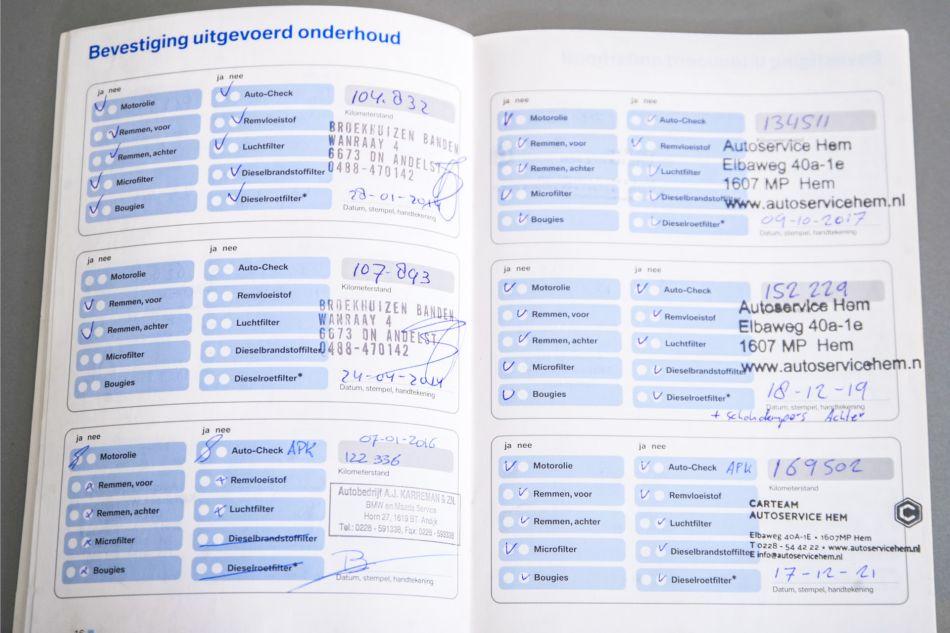 Bevestiging uitgevoerd onderhoud
ja nee
ja nee
Motorolie
Auto-Check
104.832
Kilometerstand
Remmen, voor
Remvloeistof
BROEKHUIZEN BANDEN
WANRAAY 4
6673 DN ANDELST
0488-470142
Remmen, achter
Luchtfilter
Microfilter
Dieselbrandstoffilter
Bougies
Dieselroetfilter*
28-01-2014
Datum, stempel, handtekening
ja nee
ja nee
Motorolie
Auto-Check
107.893
Kilometerstand
Remmen, voor
Remvloeistof
BROEKHUIZEN BANDEN
WANRAAY 4
6673 DN ANDELST
0488-470142
Remmen, achter
Luchtfilter
Microfilter
Dieselbrandstoffilter
Bougies
Dieselroetfilter*
24-04-2014
Datum, stempel, handtekening
ja nee
ja nee
Motorolie
Auto-Check APK
07-01-2016
122 336
Kilometerstand
Remmen, voor
Remvloeistof
Autobedrijf A.J. KARREMAN & ZN.
BMW en Mazda Service
Horn 27, 1619 BT Andijk
Tel.: 0228 - 591338, Fax: 0228 - 593338
Remmen, achter
Luchtfilter
Microfilter
Dieselbrandstoffilter
Bougies
Dieselroetfilter*
Datum, stempel, handtekening
16
ja nee
ja nee
Motorolie
Auto-Check
134511
Remmen, voor
Remvloeistof
Autoservice Hem
Elbaweg 40a-1e
1607 MP Hem
www.autoservicehem.nl
Remmen, achter
Luchtfilter
Microfilter
Dieselbrandstoffilter
Bougies
Dieselroetfilter*
09-10-2017
Datum, stempel, handtekening
ja nee
ja nee
Motorolie
Auto-Check
152 229
Remmen, voor
Remvloeistof
Autoservice Hem
Elbaweg 40a-1e
1607 MP Hem
www.autoservicehem.n
Remmen, achter
Luchtfilter
Microfilter
Dieselbrandstoffilter
Bougies
Dieselroetfilter*
18-12-19
Datum, stempel, handtekening
+ schokdempers Achter
ja nee
ja nee
Motorolie
Auto-Check APK
169502
Kilometerstand
Remmen, voor
Remvloeistof
CARTEAM
AUTOSERVICE HEM
Elbaweg 40A-1E • 1607MP Hem
T 0228 - 54 42 22 • www.autoservicehem.nl
E info@autoservicehem.nl
Remmen, achter
Luchtfilter
Microfilter
Dieselbrandstoffilter
Bougies
Dieselroetfilter*
17-12-21
Datum, stempel, handtekening